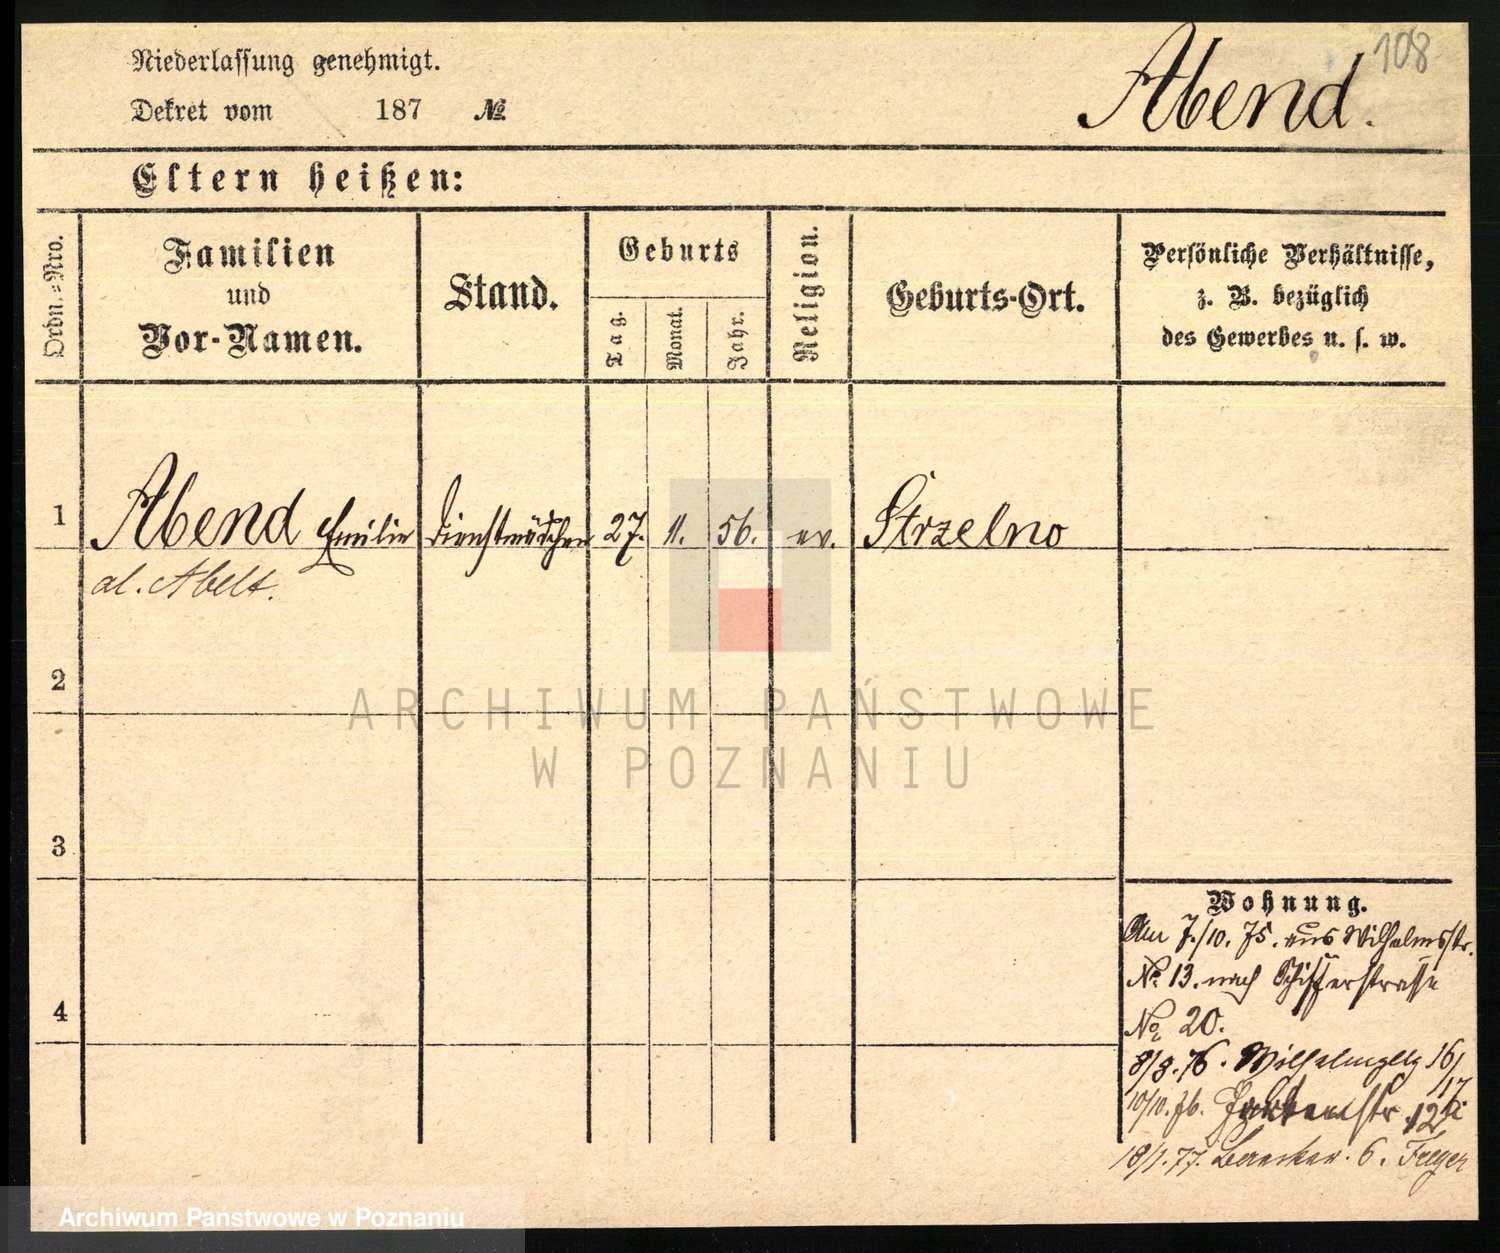 108
Niederlassung genehmigt.
Abend.
Dekret vom 187 №
Eltern heißen:
Ordn.=Nro.
Familien
und
Vor-Namen.
Stand.
Geburts
Tag.
Monat.
Jahr.
Religion.
Geburts-Ort.
Persönliche Verhältnisse,
z. B. bezüglich
des Gewerbes u. s. w.
1 Abend Emilie Dienstmädchen 27. 11. 56. ev. Strzelno
al. Abelt.
2
ARCHIWUM PAŃSTWOWE
W POZNANIU
3
4
Wohnung.
Am 7./10. 75. aus Wilhelmsstr.
№ 13. nach Schifferstrasse
№ 20.
8/3. 76. Wilhelmsplz 16/
17
10/10. 76. Gartenstr 12a
18/1. 77. 6.
Archiwum Państwowe w Poznaniu